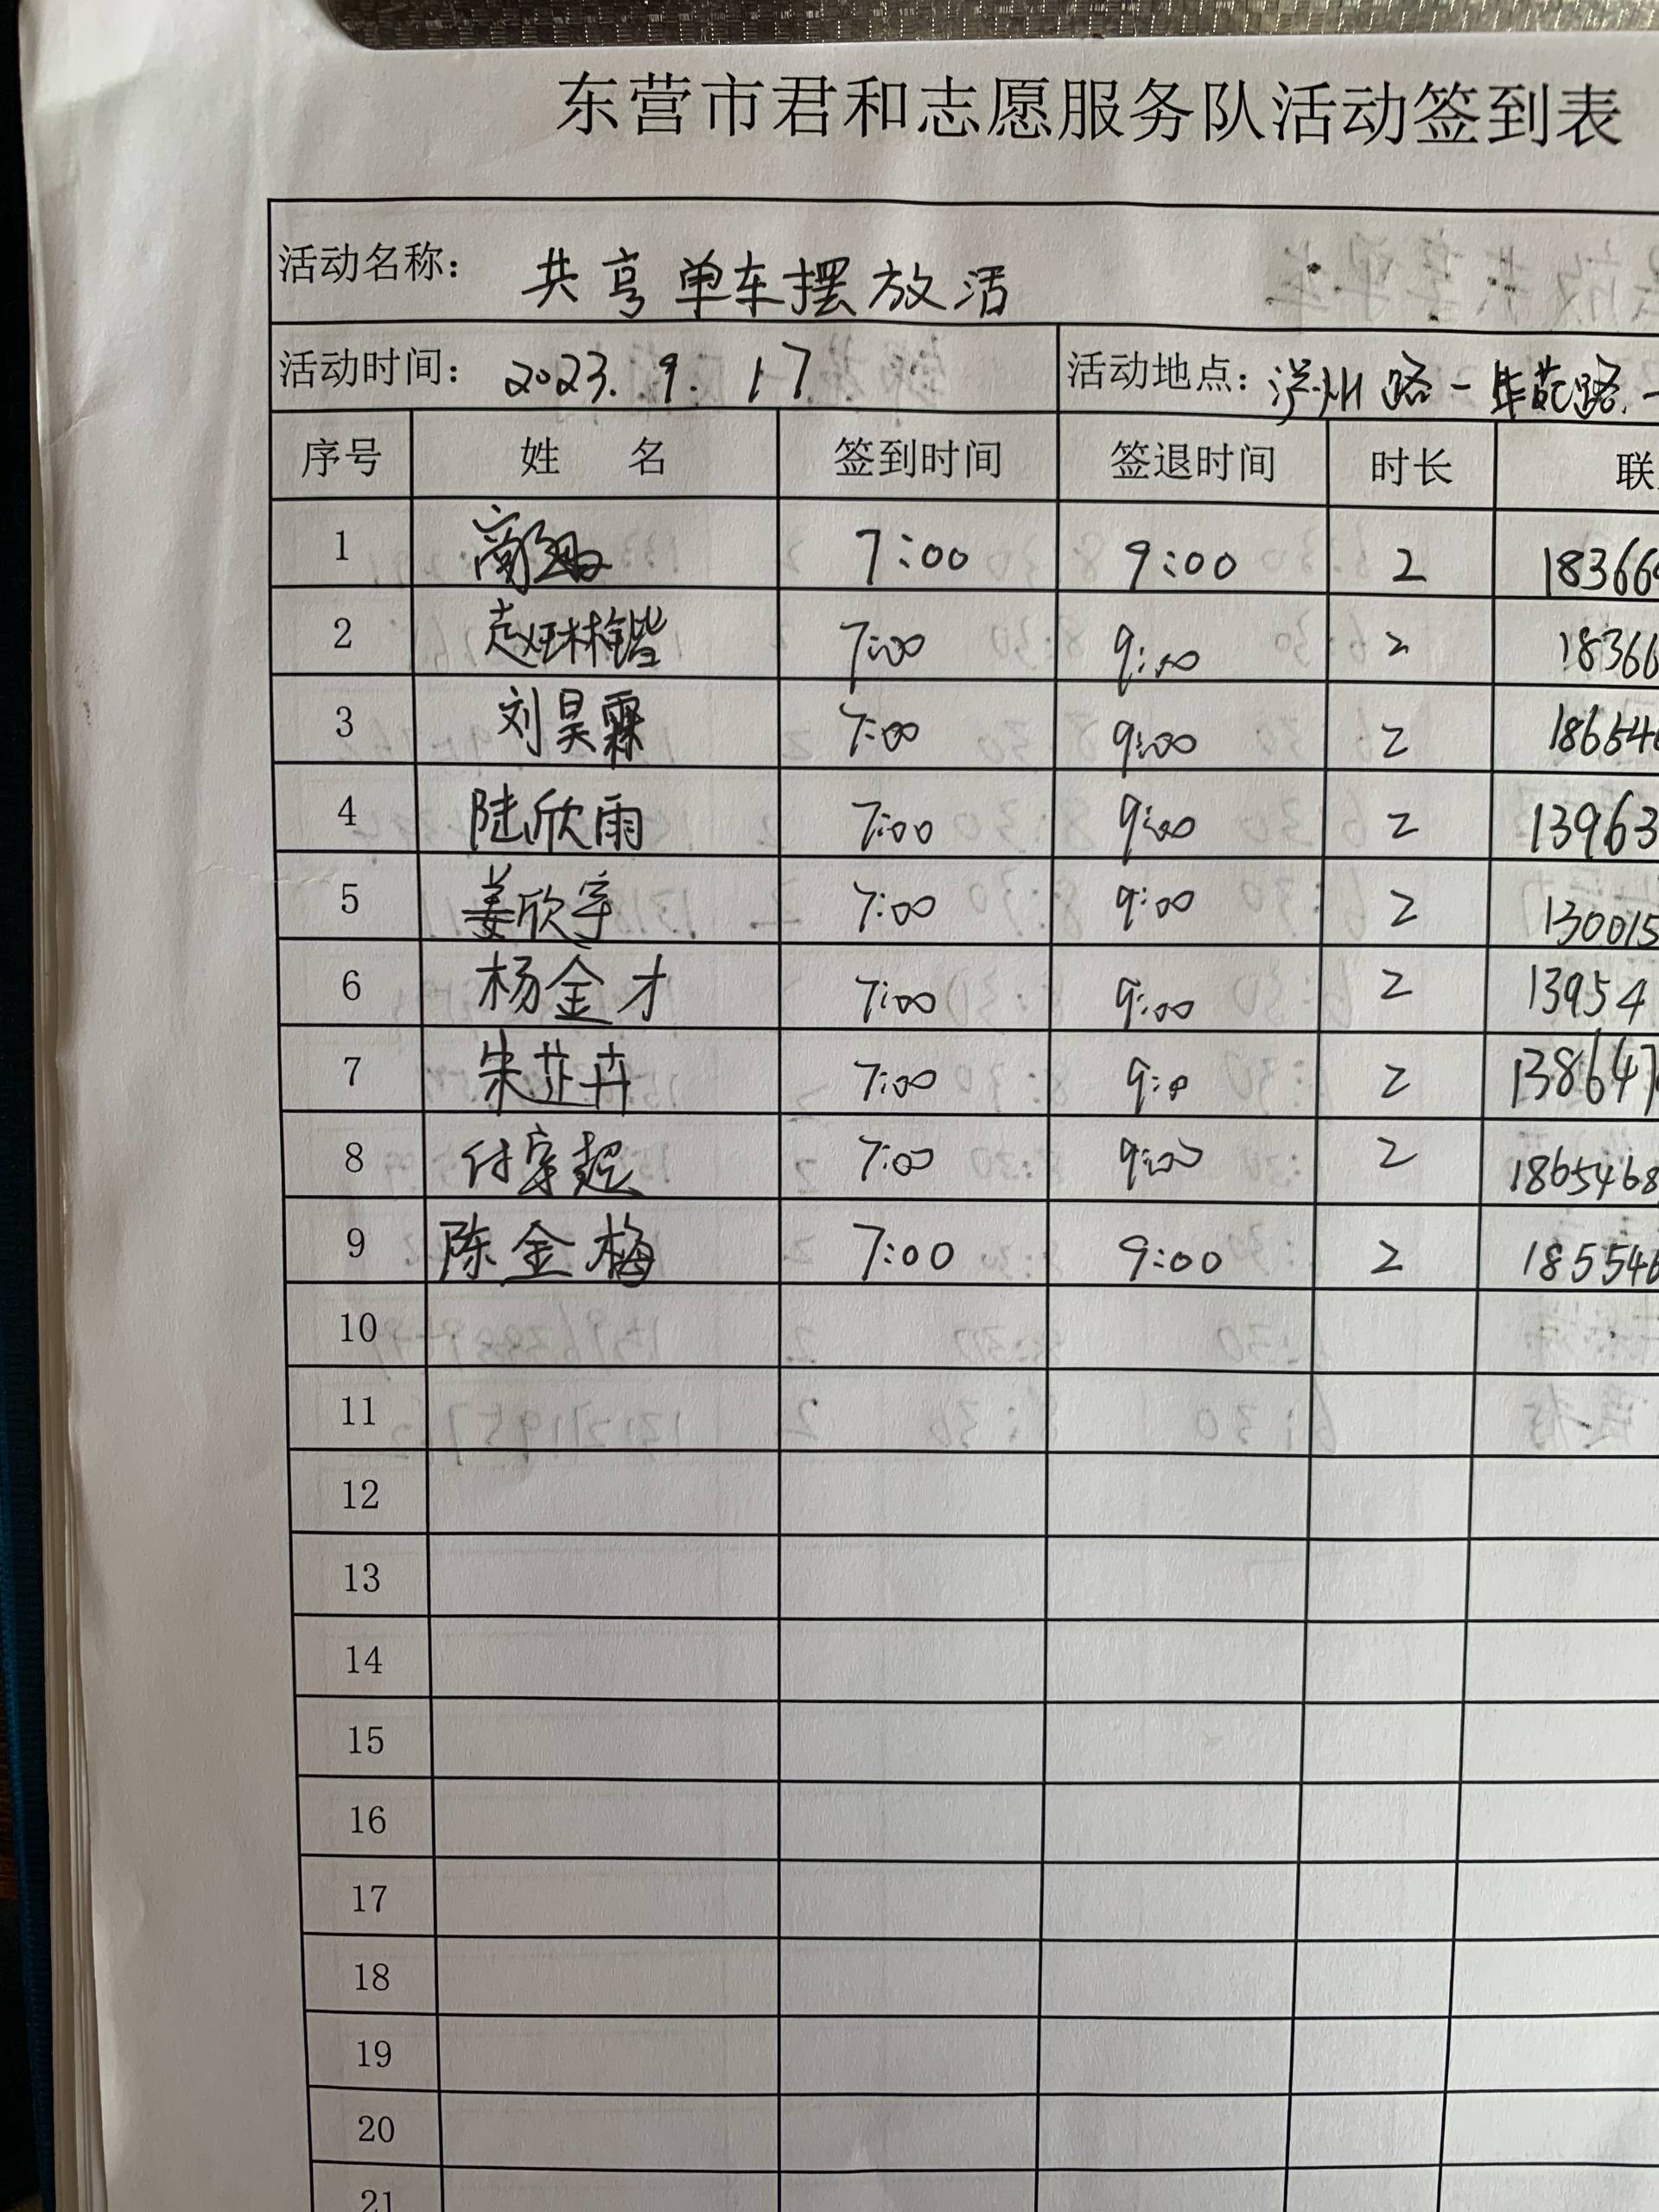 东营市君和志愿服务队活动签到表
活动名称： 共享单车摆放活
活动时间： 2023.9.17 活动地点： 路一 路.
序号 姓 名 签到时间 签退时间 时长 联
1 7:00 9:00 2 18366
2 赵 7:00 9:00 2 18366
3 刘昊霖 7:00 9:00 2 18654
4 陆欣雨 7:00 9:00 2 13963
5 姜欣宇 7:00 9:00 2 130015
6 杨金才 7:00 9:00 2 13954
7 朱芷卉 7:00 9:0 2 138647
8 付 起 7:00 9:00 2 1865468
9 陈金梅 7:00 9:00 2 185546
10
11
12
13
14
15
16
17
18
19
20
21